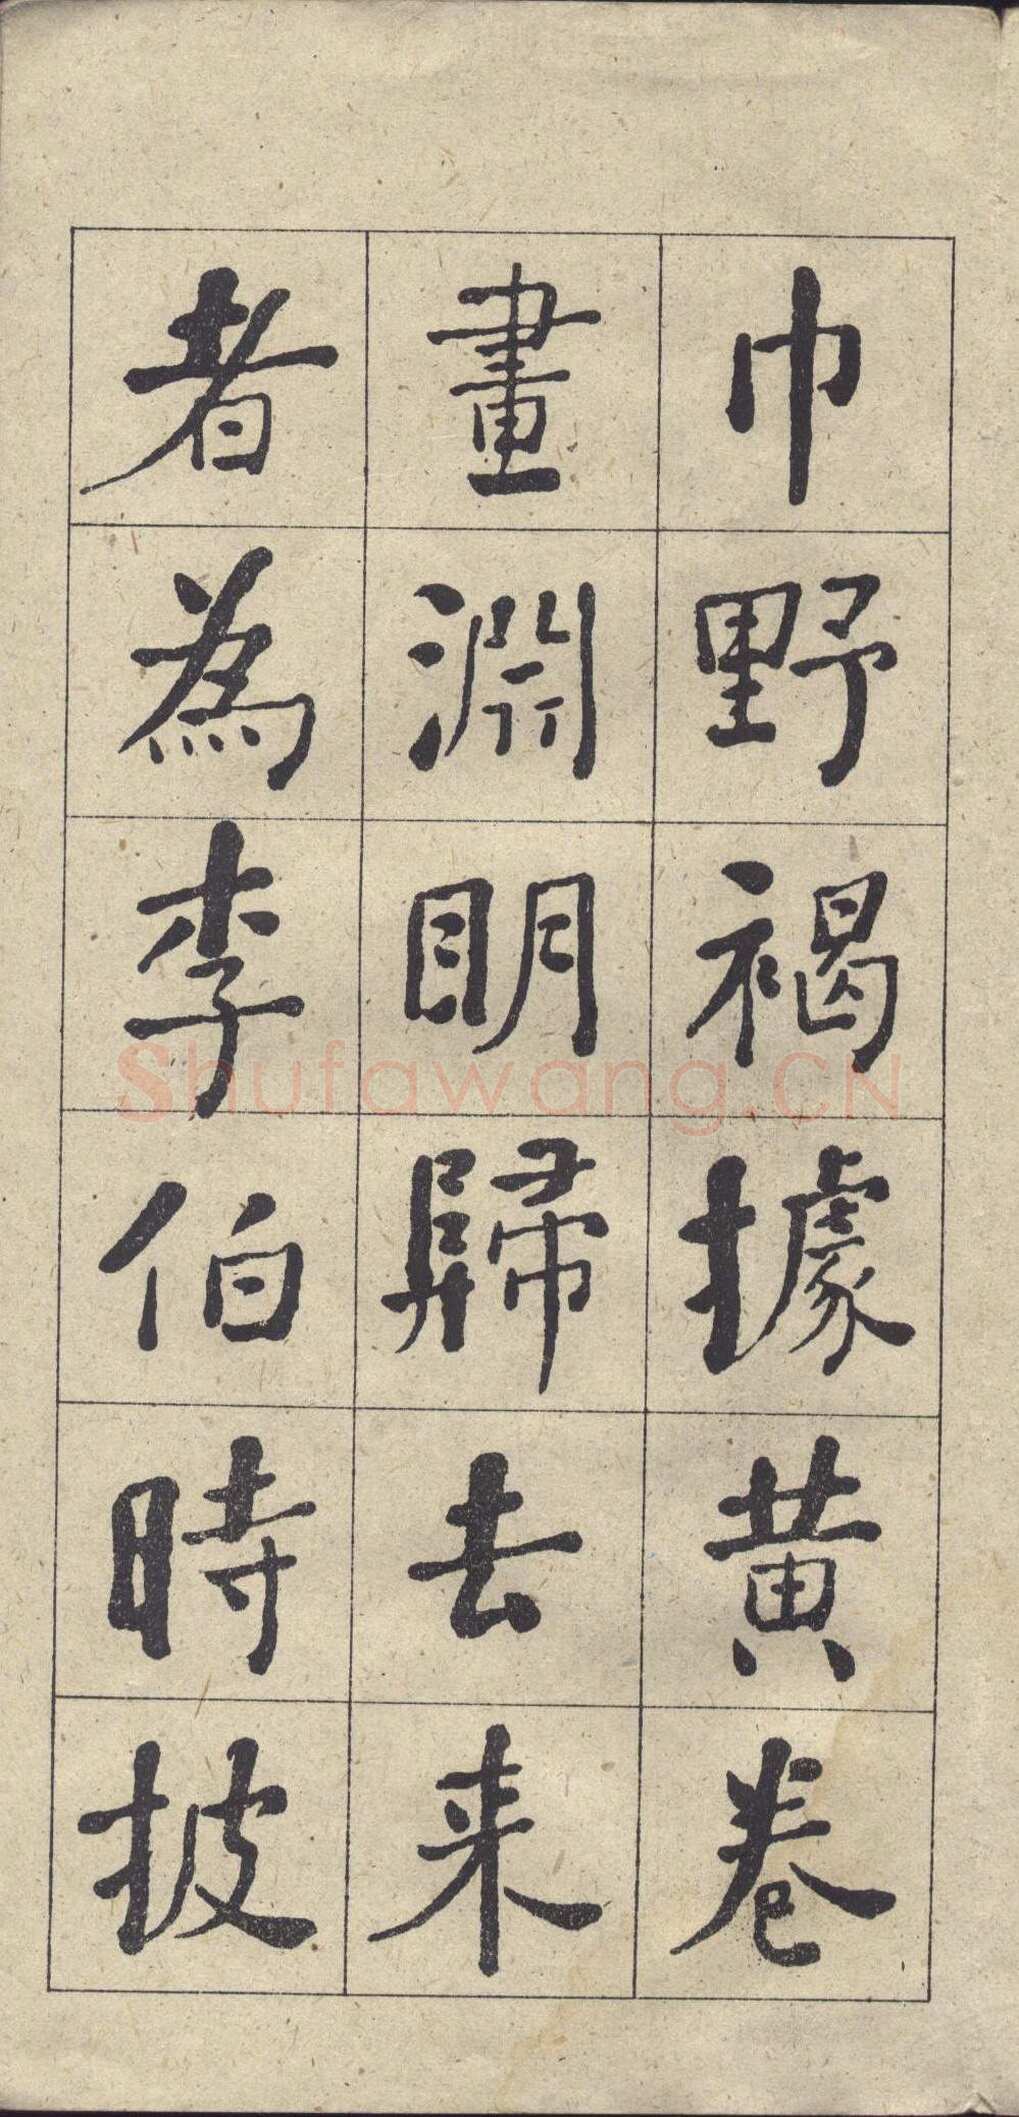 巾野褐據黄卷
畫淵明歸去来
者為李伯時披
Shufawang.CN